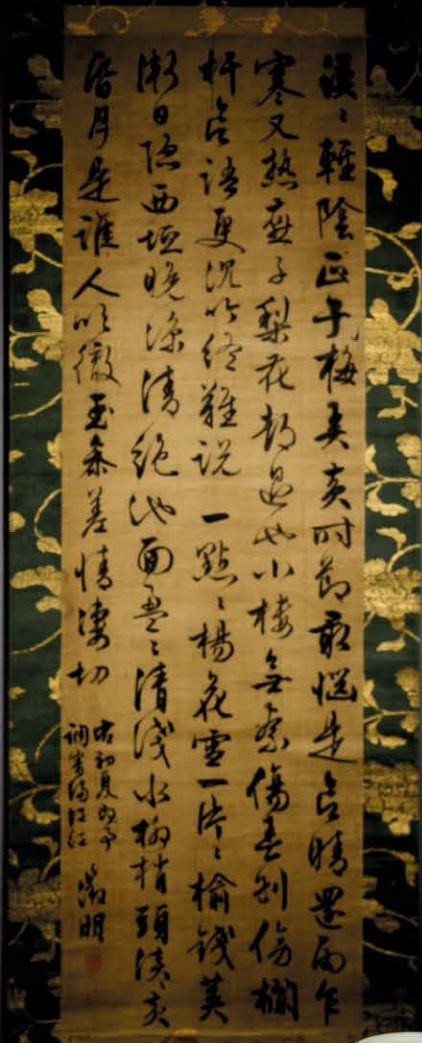 漠ゝ輕陰正子梅弄黄時節最惱是欲晴還雨乍
寒又熱燕子梨花都過也小樓無奈傷春別傍欄
杆欲語更沉吟終難說 一點ゝ楊花雪一片ゝ榆錢莢
漸日隱西垣晚涼清絕池面盈ゝ清淺水柳梢頭淡ゝ黄
昏月是誰人吹徹玉參差情凄切
右初夏即事
調寄滿江紅
徵明